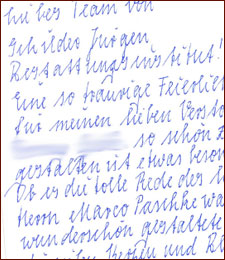 Liebes Team von
Schilder Jürgen,
Bestattungsinstitut!
Eine so traurige Feierlie
für meinen lieben Versto
so schön z
gestalten ist etwas beson
Ob es die tolle Rede des
Herrn Marco Paschke wa
wunderschön gestaltete
Kerzen und